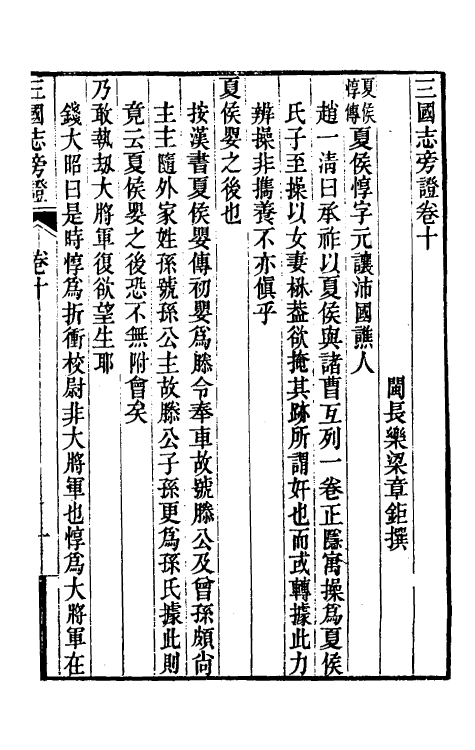 三國志旁證卷十
閩長樂梁章鉅撰
夏侯惇傳夏侯惇字元讓沛國譙人
趙一清曰承祚以夏侯與諸曹互列一卷正隱寓操爲夏侯
氏子至操以女妻楙蓋欲掩其跡所謂奸也而或轉據此力
辨操非攜養不亦傎乎
夏侯嬰之後也
按漢書夏侯嬰傳初嬰爲滕令奉車故號滕公及曾孫頗尙
主主隨外家姓孫號孫公主故滕公子孫更爲孫氏據此則
竟云夏侯嬰之後恐不無附會矣
乃敢執劫大將軍復欲望生耶
錢大昭曰是時惇爲折衝校尉非大將軍也惇爲大將軍在
三國志旁證
卷十
一